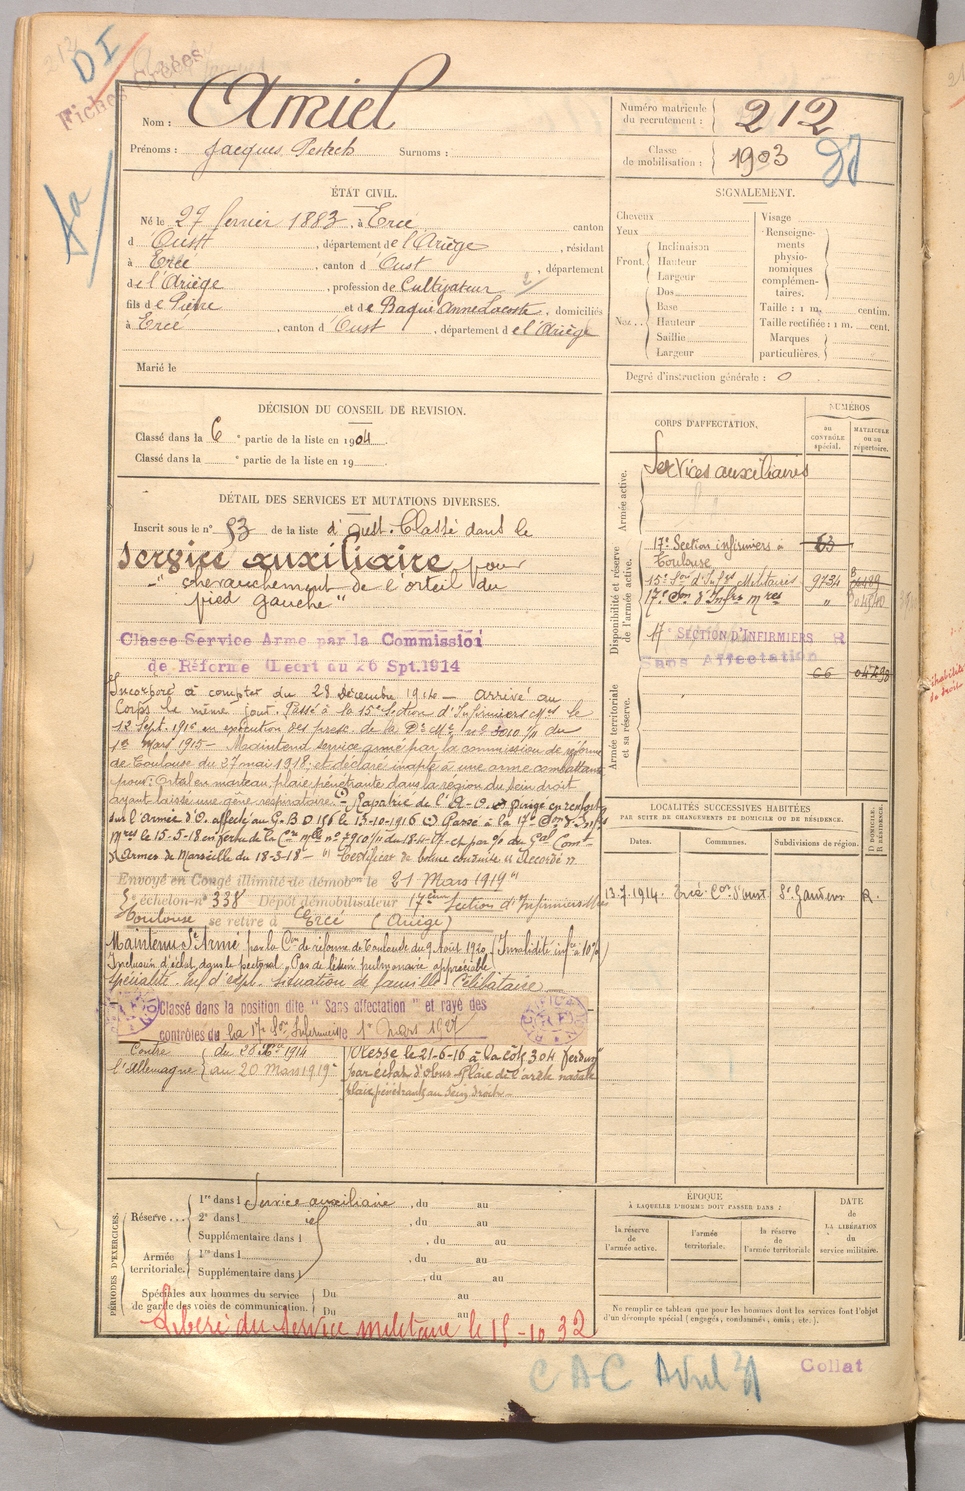 212
DI
Fiches Créées
Sa
Nom : Amiel
Prénoms : Jacques, Pestech Surnoms :
Numéro matricule du recrutement : 212
Classe de mobilisation : 1903
ÉTAT CIVIL.
Né le 27 fevrier 1883, à Ercé, canton
d'Oust, département de l'Ariège, résidant
à Ercé, canton d'Oust, département
de l'Ariège, profession de Cultivateur
fils de Pierre et de Baqué Anne Lacoste, domiciliés
à Ercé, canton d'Oust, département de l'Ariège
Marié le
SIGNALEMENT.
Cheveux
Yeux
Front. Inclinaison
Hauteur
Largeur
Nez... Dos
Base
Hauteur
Saillie
Largeur
Visage
Renseignements physionomiques complémentaires.
Taille : 1 m. centim.
Taille rectifiée : 1 m. cent.
Marques particulières.
Degré d'instruction générale : 0
DÉCISION DU CONSEIL DE REVISION.
Classé dans la 6e partie de la liste en 1904
Classé dans la e partie de la liste en 19
DÉTAIL DES SERVICES ET MUTATIONS DIVERSES.
Inscrit sous le n° 53 de la liste d'Oust. Classé dans le
service auxiliaire pour
"chevauchement de l'orteil du
pied gauche"
Classe Service Arme par la Commission
de Réforme (Decrt du 26 Spt. 1914
Incorporé à compter du 28 décembre 1914 — Arrivé au
Corps le même jour. Passé à la 15e Section d'Infirmiers Mres le
12 Sept. 1915 en exécution des presc. de la De Mle n° 3010 % du
1er Mars 1915 — Maintenu service armé par la commission de réforme
de Toulouse du 27 mai 1918; et déclaré inapte à une arme combattante
pour: Orteil en marteau, plaie pénétrante dans la région du sein droit
ayant laissé une gêne respiratoire. Rapatrié de l'A-O. Dirigé en renfort
sur l'Armée d'O. affecté au G.B.D 156 le 13-10-1916. Passé à la 17e Son d'Infrs
Mres le 15-5-18 en vertu de la Cre Mlle n° 7910 % du 18-4-17 et par % du Gal Comt
d'Armes de Marseille du 18-3-18 — "Certificat de bonne conduite" Accordé
Envoyé en Congé illimité de démobon le 21 Mars 1919"
échelon n° 338 Dépôt démobilisateur 17eme Section d'Infirmiers Mres
Toulouse se retire à Ercé (Ariège)
Maintenu Sce Armé par la Con de réforme de Toulouse du 9 Août 1920 (Invalidité infre à 10%)
Inclusion d'éclat dans le pectoral. Pas de lésion pulmonaire appréciable
Situation de famille: Célibataire
Classé dans la position dite "Sans affectation" et rayé des
contrôles du la 17e Son Infirmiers le 1er Mars 1927
Contre l'Allemagne
du 28 Xbre 1914
au 20 Mars 1919
Blessé le 21-6-16 à la côte 304 Verdun
par éclat d'obus. Plaie de l'arête nasale
plaie pénétrante au sein droit
CORPS D'AFFECTATION.
NUMÉROS
au CONTRÔLE spécial.
MATRICULE ou au répertoire.
Armée active.
Services auxiliaires
Disponibilité et réserve de l'armée active.
17e Section infirmiers à Toulouse 63
15e Son d'Infrs Militaires 9734
17e Son d'Infrs Mres "
17 SECTION D'INFIRMIERS R
Sans Affectation
66
Armée territoriale et sa réserve.
LOCALITÉS SUCCESSIVES HABITÉES
PAR SUITE DE CHANGEMENTS DE DOMICILE OU DE RÉSIDENCE.
Dates. Communes. Subdivisions de région. D DOMICILE. R RÉSIDENCE.
13.7.1914 Ercé Con d'Oust St Gaudens R.
PÉRIODES D'EXERCICES.
Réserve... 1re dans l Service auxiliaire, du au
2e dans l id, du au
Supplémentaire dans l, du au
Armée territoriale. 1re dans l, du au
Supplémentaire dans l, du au
Spéciales aux hommes du service de garde des voies de communication. Du au
Du au
Libéré du service militaire le 15-10-32
ÉPOQUE
À LAQUELLE L'HOMME DOIT PASSER DANS :
la réserve de l'armée active.
l'armée territoriale.
la réserve de l'armée territoriale
DATE de LA LIBÉRATION du service militaire.
Ne remplir ce tableau que pour les hommes dont les services font l'objet
d'un décompte spécial (engagés, condamnés, omis, etc.).
CAC Avril
Collat